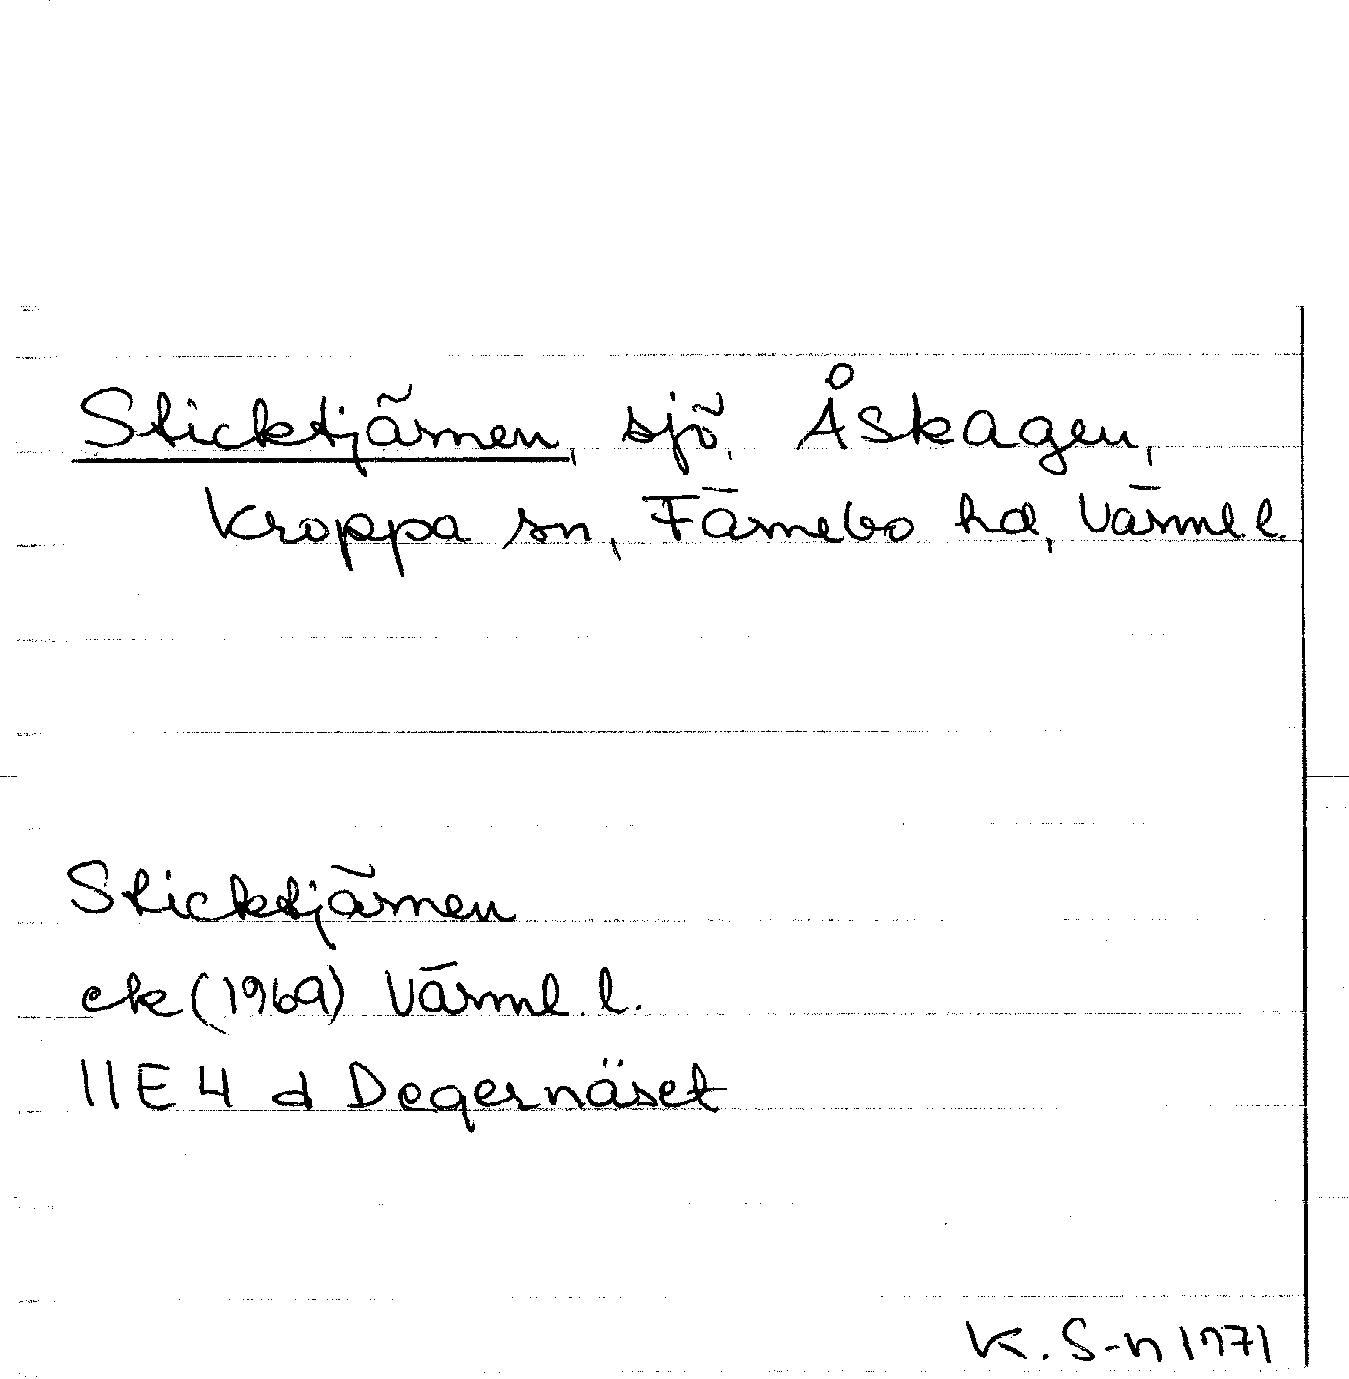 Sticktjärnen, sjö, Åskagen,
Kroppa sn, Färnebo hd, Värml. l.
Sticktjärnen
ek (1969) Värml. l.
11E 4 d Degernäset
K. S-n 1971